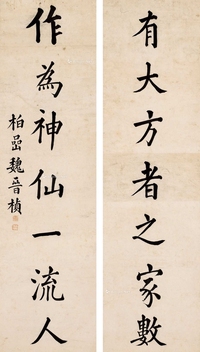 有大方者之家數
作為神仙一流人
柏嵒魏晉楨